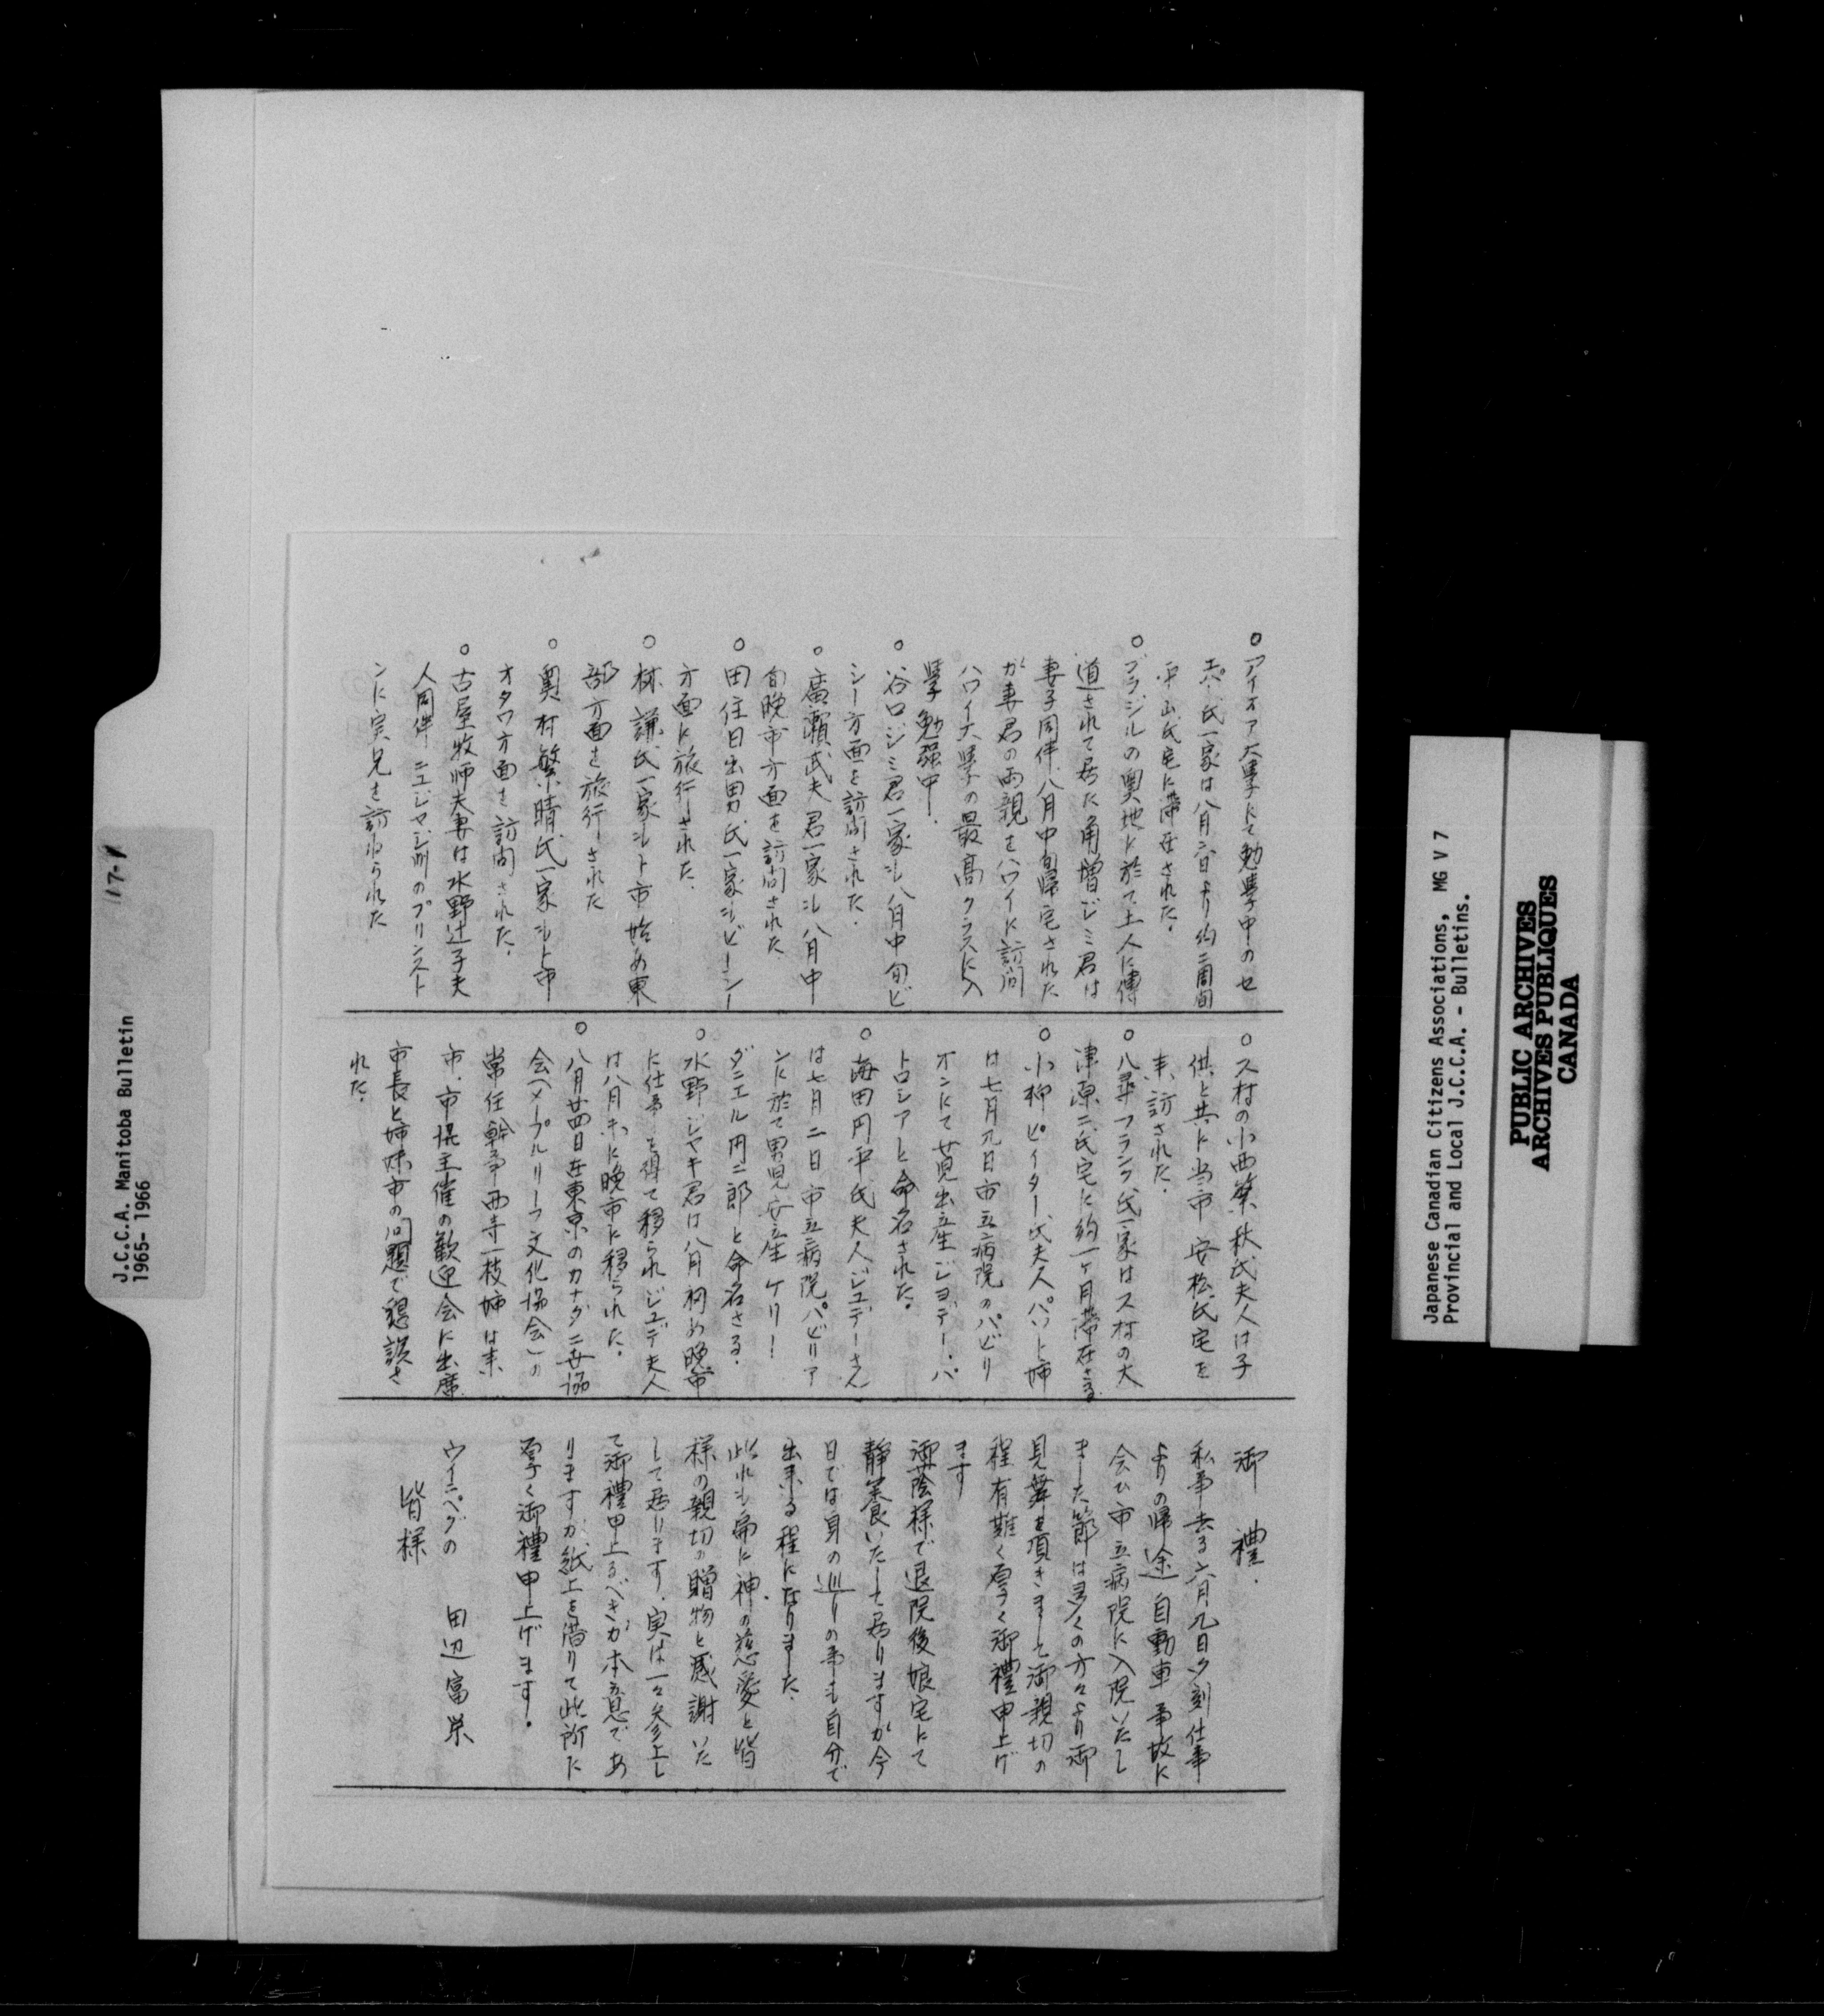 ○アイオア大學にて勉學中のセ
氏一家は八月六日より約二週間
平山氏宅に滞在された.
○ブラジルの奥地に於て土人に傳
道されて居た角增ジミ君は
妻子同伴八月中旬歸宅された
が妻君の両親をハワイに訪問
ハワイ大學の最高クラスに入
學勉强中.
○谷口ジミ君一家も八月中旬ビ
シー方面を訪問された.
○廣瀬武夫君一家も八月中
旬晩市方面を訪問された
○田住日出男氏一家もビーシー
方面に旅行された.
○林 謙氏一家もト市始め東
部方面を旅行された
○奥村繁晴氏一家もト市
オタワ方面を訪問された.
○古屋牧師夫妻は水野辻子夫
人同伴ニュジャジ州のプリンスト
ンに実兄を訪ねられた
○ス村の小西築秋氏夫人は子
供と共に当市安松氏宅を
来訪された.
○八尋フランク氏一家はス村の大
津原二氏宅に約一ヶ月滞在さる
○小柳ピイター氏夫人パット姉
は七月九日市立病院のパビリ
オンにて女児出産ジョデー.パ
トロシアと命名された.
○海田円平氏夫人ジュデーさん
は七月二日市立病院パビリア
ンに於て男児安産ケリー
ダニエル円二郎と命名さる.
○水野ジャキ君は八月初め晩市
に仕事を得て移られジュデ夫人
は八月末に晩市に移られた.
○八月廿四日在東京のカナダ二世協
会(メープルリーフ文化協会)の
常任幹事西寺一枝姉は来
市.市協主催の歓迎会に出席
市長と姉妹市の問題で懇談さ
れた.
御 禮.
私事去る六月九日夕刻仕事
よりの帰途自動車事故に
会ひ市立病院に入院いたし
ました節は多くの方々より御
見舞を項きまして御親切の
程有難く厚く御禮申上げ
ます
御蔭様で退院後娘宅にて
静養いたして居りますが今
日では身の巡りの事も自分で
出来る程になりました.
此れも偏に神の慈愛と皆
様の親切の贈物と感謝いた
して居ります.実は一々参上し
て御禮申上るべきが本意であ
りますが紙上を借りて此所た
厚く御禮申上げます.
ウイニペグの 田辺富栄
皆様
17-1
J.C.C.A. Manitoba Bulletin
1965-1966
Japanese Canadian Citizens Associations, MG V 7
Provincial and Local J.C.C.A. - Bulletins.
PUBLIC ARCHIVES
ARCHIVES PUBLIQUES
CANADA